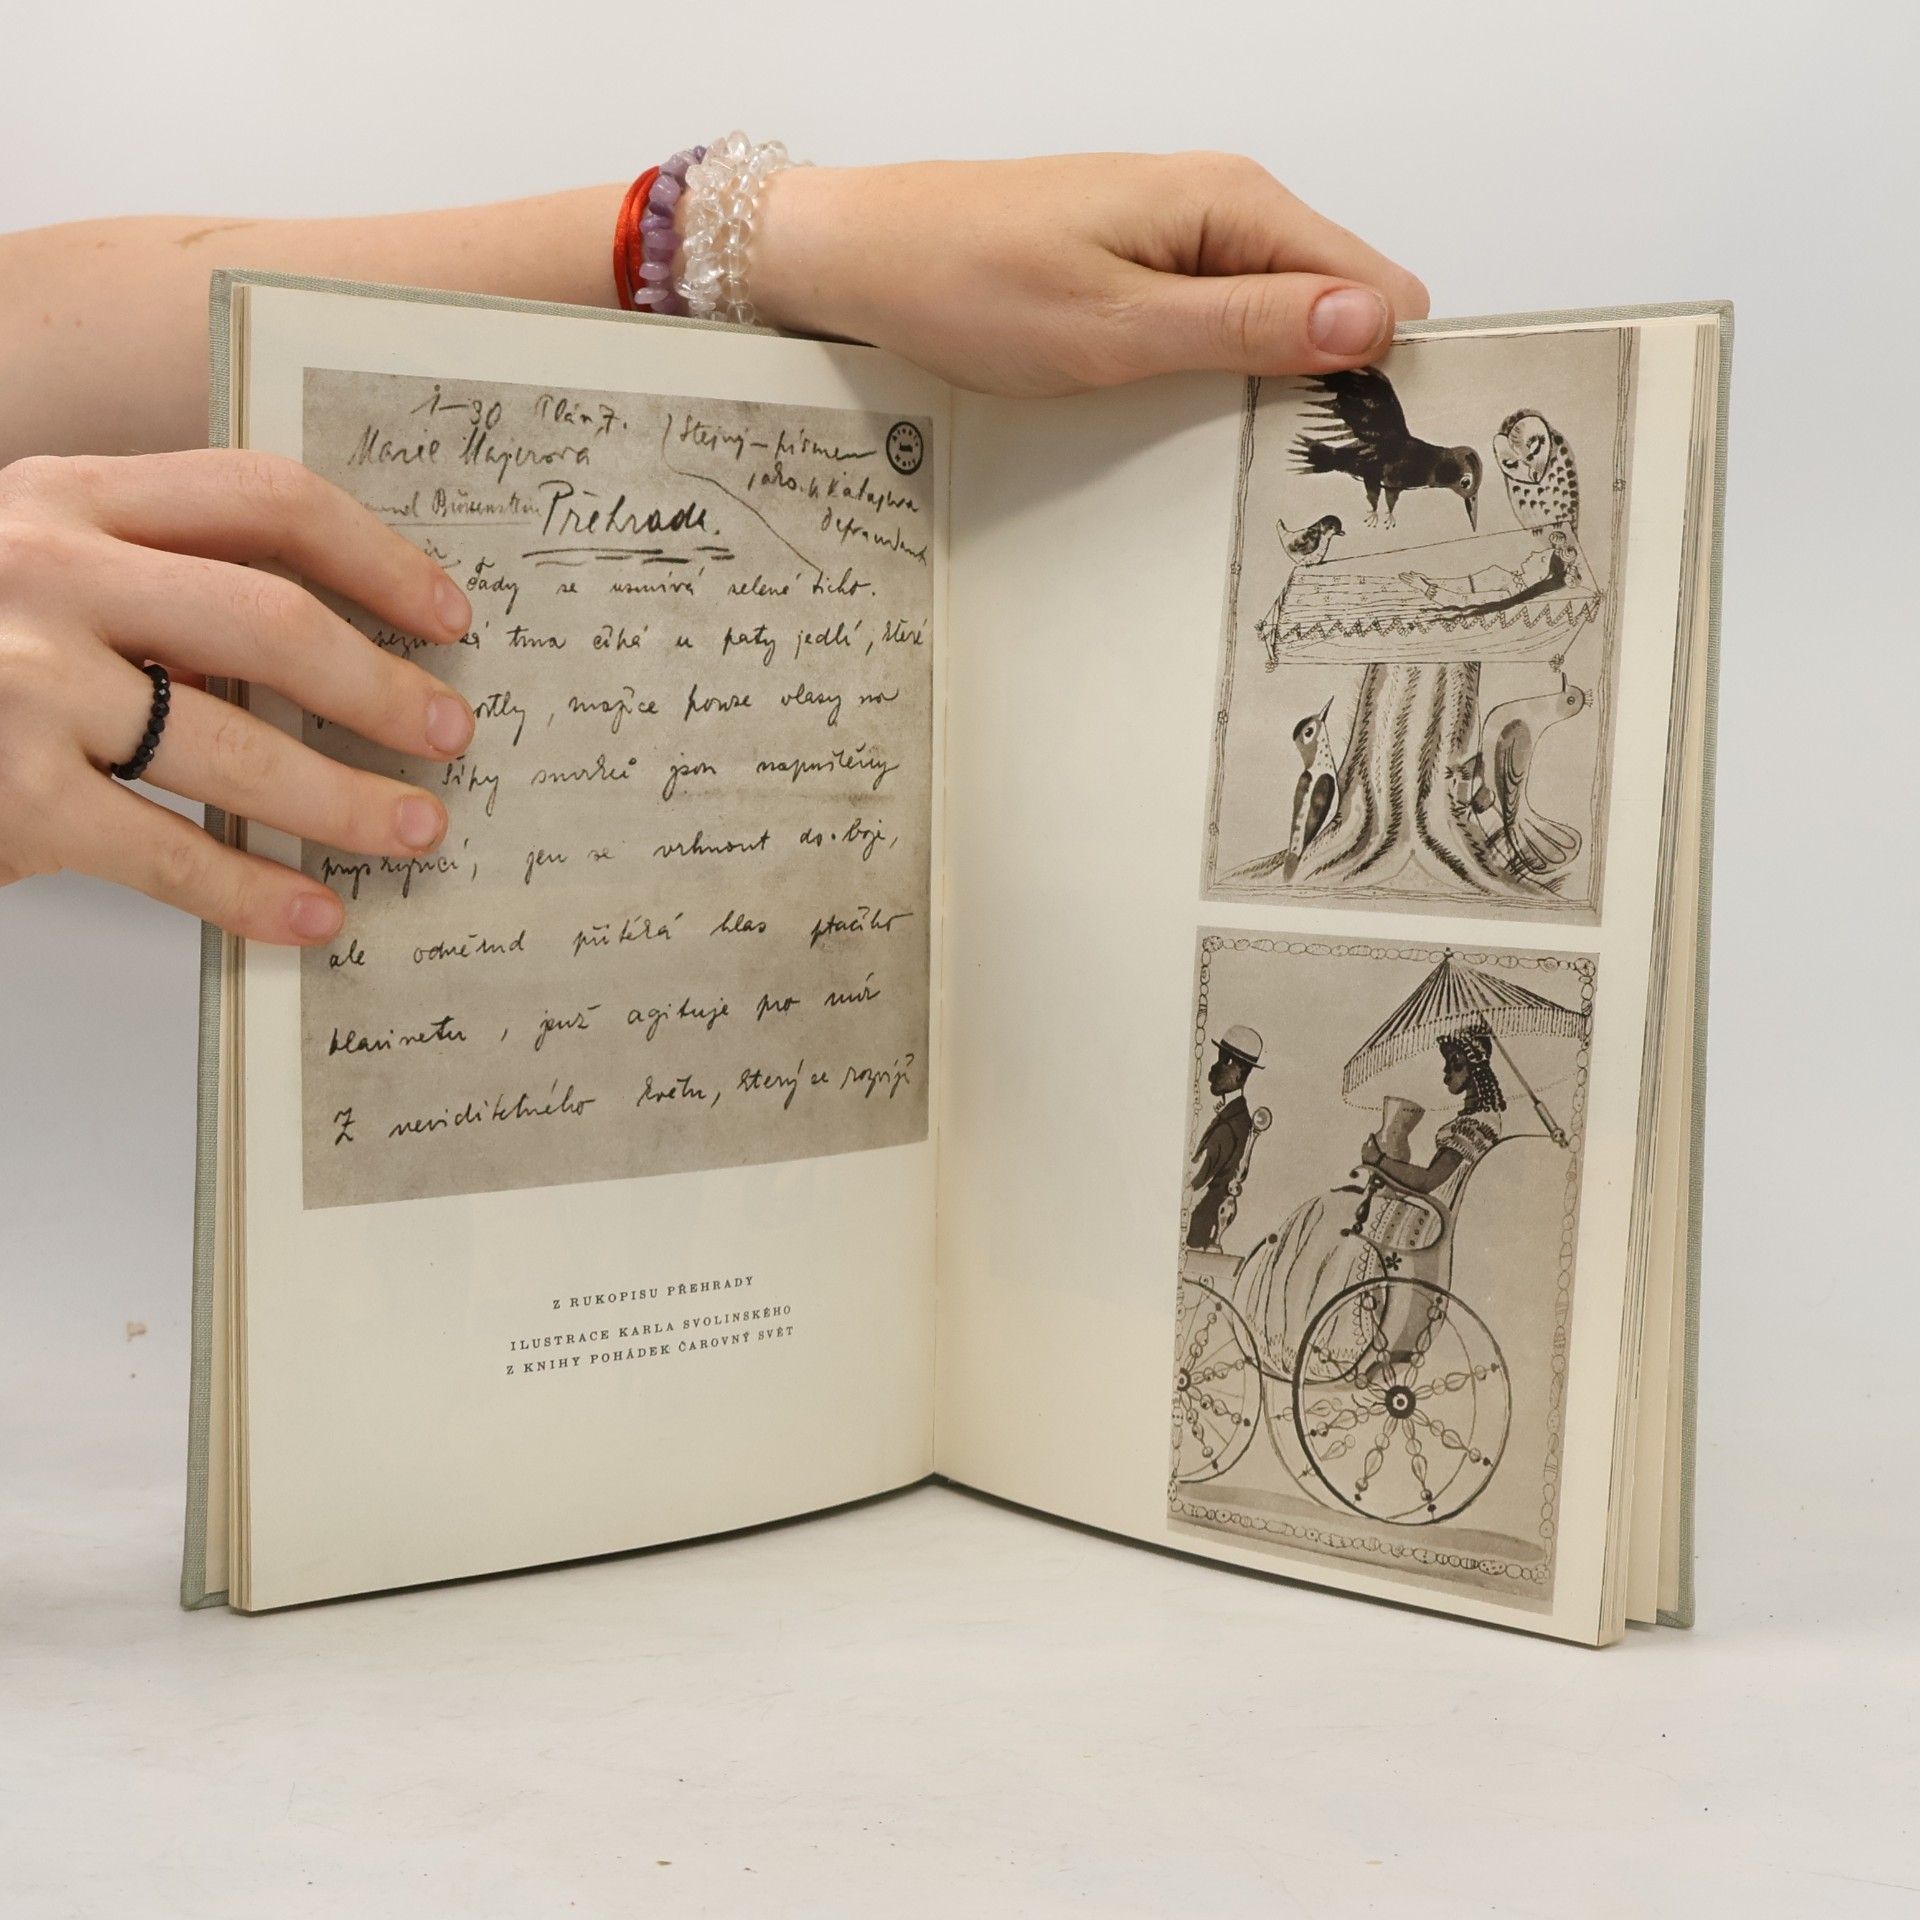 1–30 Plán 7.
Marie Majerová
(Stejný – písmem
jako u
Přehrada.
se usmívá zelené ticho.
tma číhá u paty jedlí, které
, majíce pouze vlasy na
Šípy smrků jsou napuštěny
pryskyřicí, jen se vrhnout do boje,
ale odněkud přitéká hlas ptačího
klarinetu, jenž agituje pro mír
Z neviditelného květu, který se rozvíjí
Z RUKOPISU PŘEHRADY
ILUSTRACE KARLA SVOLINSKÉHO
Z KNIHY POHÁDEK ČAROVNÝ SVĚT